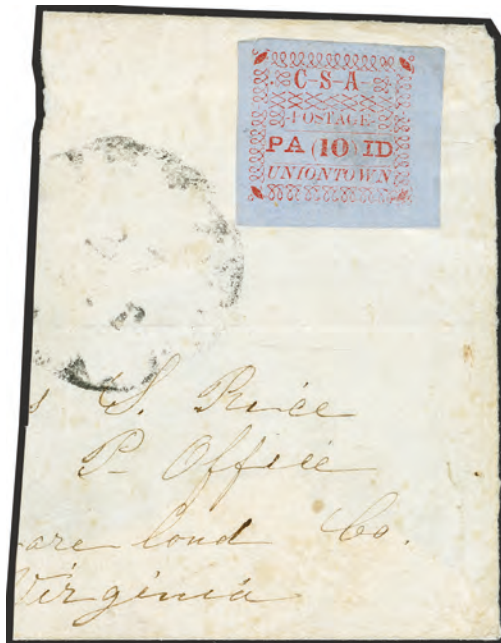 C-S-A-
POSTAGE
PA (10) ID
UNIONTOWN.
s S. Price
P- Office
Co.
Virginia